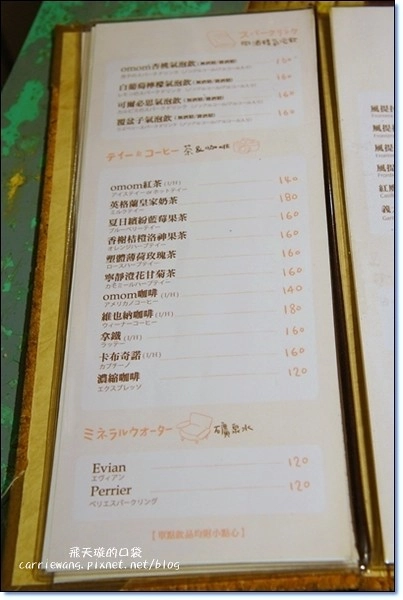 スパークリング
omom香桃氣泡飲
白葡萄檸檬氣泡飲 160
可爾必思氣泡飲 160
覆盆子氣泡飲 160
ティー&コーヒー 茶&咖啡
omom紅茶 (I/H) 140
アイスティー or ホットティー
英格蘭皇家奶茶 180
ミルクティー
夏日繽紛藍莓果茶 160
ブルーベリーティー
香榭桔橙洛神果茶 160
オレンジハーブティー
塑體薄荷玫瑰茶 160
ローズハーブティー
寧靜澄花甘菊茶 160
カモミールハーブティー
omom咖啡 (I/H) 140
アメリカノコーヒー
維也納咖啡 (I/H) 180
ウィーナーコーヒー
拿鐵 (I/H) 160
ラッテー
卡布奇諾 (I/H) 160
カプチーノ
濃縮咖啡 120
エクスプレッソ
ミネラルウオーター 礦泉水
Evian 120
エヴィアン
Perrier 120
ペリエスパークリング
【單點飲品均附小點心】
風提
風提
風提
紅
義
飛天璇的口袋
carriewang.pixnet.net/blog